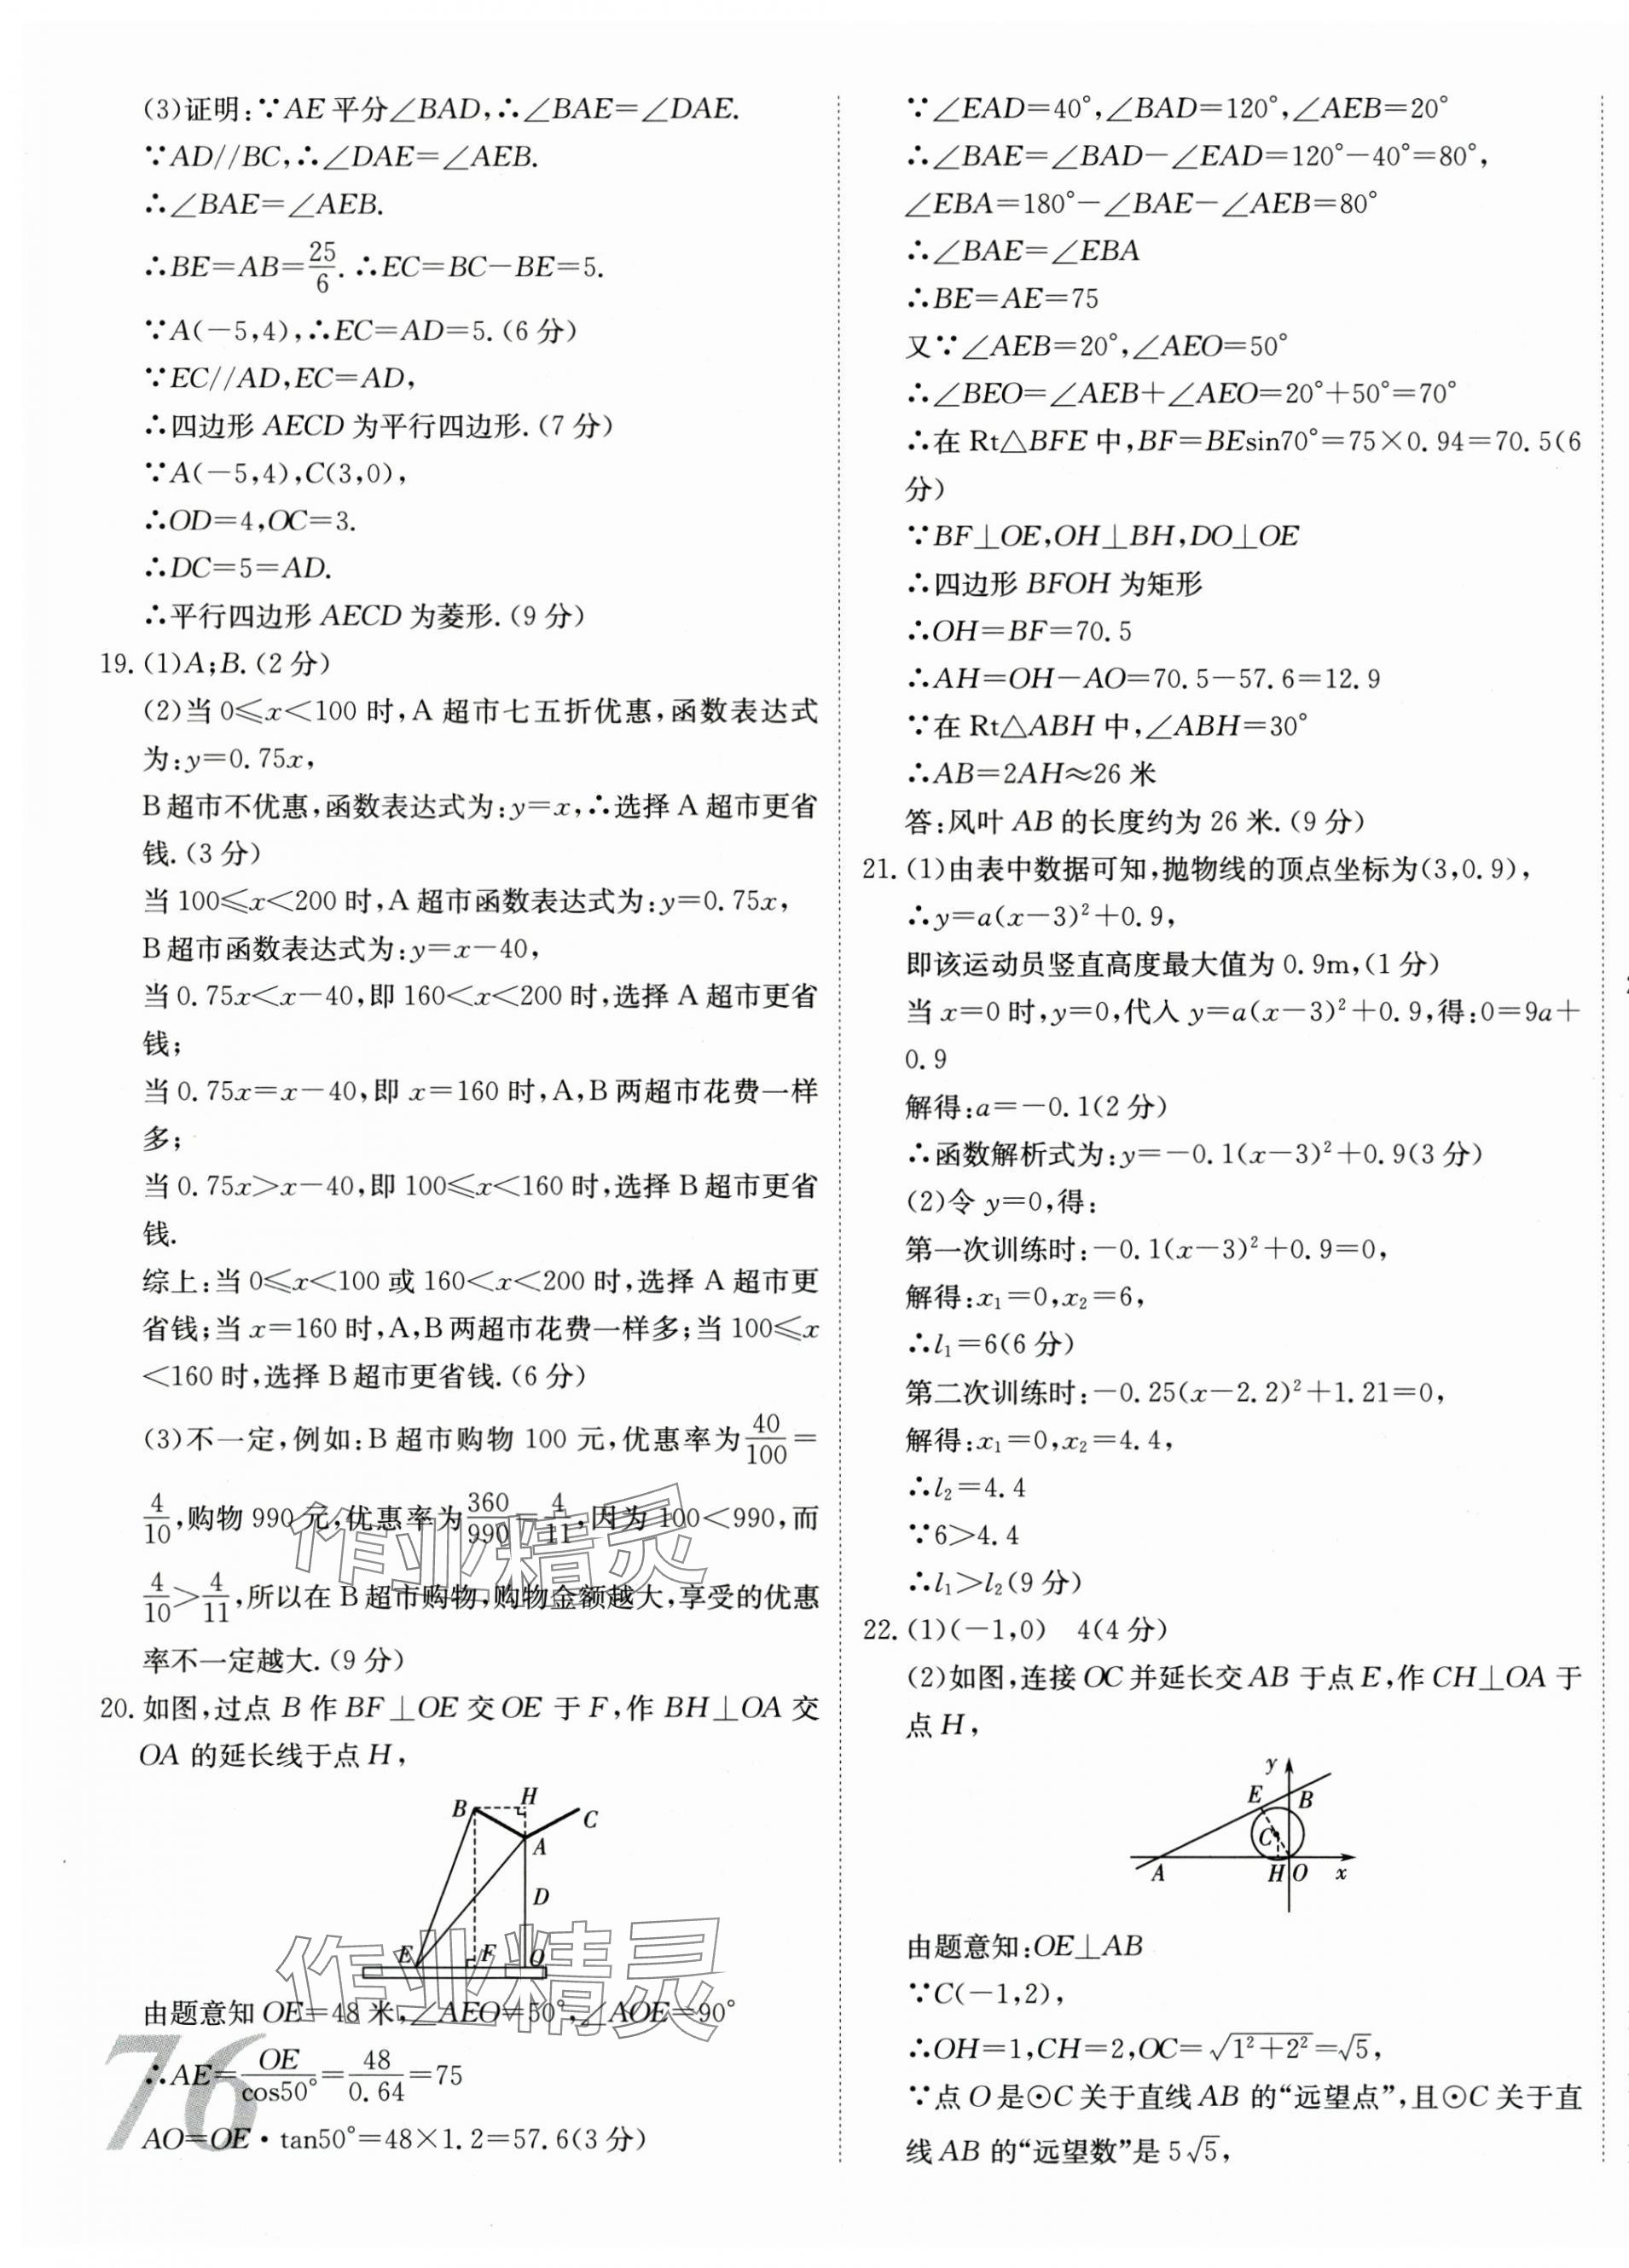 (3)证明:∵AE平分∠BAD,∴∠BAE=∠DAE.
∵AD//BC,∴∠DAE=∠AEB.
∴∠BAE=∠AEB.
∴BE=AB=25/6.∴EC=BC-BE=5.
∵A(-5,4),∴EC=AD=5.(6分)
∵EC//AD,EC=AD,
∴四边形AECD为平行四边形.(7分)
∵A(-5,4),C(3,0),
∴OD=4,OC=3.
∴DC=5=AD.
∴平行四边形AECD为菱形.(9分)
19.(1)A;B.(2分)
(2)当0≤x<100时,A超市七五折优惠,函数表达式
为:y=0.75x,
B超市不优惠,函数表达式为:y=x,∴选择A超市更省
钱.(3分)
当100≤x<200时,A超市函数表达式为:y=0.75x,
B超市函数表达式为:y=x-40,
当0.75x<x-40,即160<x<200时,选择A超市更省
钱;
当0.75x=x-40,即x=160时,A,B两超市花费一样
多;
当0.75x>x-40,即100≤x<160时,选择B超市更省
钱.
综上:当0≤x<100或160<x<200时,选择A超市更
省钱;当x=160时,A,B两超市花费一样多;当100≤x
<160时,选择B超市更省钱.(6分)
(3)不一定,例如:B超市购物100元,优惠率为40/100=
4/10,购物990元,优惠率为360/990=4/11,因为100<990,而
4/10>4/11,所以在B超市购物,购物金额越大,享受的优惠
率不一定越大.(9分)
20.如图,过点B作BF⊥OE交OE于F,作BH⊥OA交
OA的延长线于点H,
B H C
A
D
E F O
由题意知OE=48米,∠AEO=50°,∠AOE=90°
∴AE=OE/cos50°=48/0.64=75
AO=OE·tan50°=48×1.2=57.6(3分)
76
作业精灵
作业精灵
∵∠EAD=40°,∠BAD=120°,∠AEB=20°
∴∠BAE=∠BAD-∠EAD=120°-40°=80°,
∠EBA=180°-∠BAE-∠AEB=80°
∴∠BAE=∠EBA
∴BE=AE=75
又∵∠AEB=20°,∠AEO=50°
∴∠BEO=∠AEB+∠AEO=20°+50°=70°
∴在Rt△BFE中,BF=BEsin70°=75×0.94=70.5(6
分)
∵BF⊥OE,OH⊥BH,DO⊥OE
∴四边形BFOH为矩形
∴OH=BF=70.5
∴AH=OH-AO=70.5-57.6=12.9
∵在Rt△ABH中,∠ABH=30°
∴AB=2AH≈26米
答:风叶AB的长度约为26米.(9分)
21.(1)由表中数据可知,抛物线的顶点坐标为(3,0.9),
∴y=a(x-3)²+0.9,
即该运动员竖直高度最大值为0.9m,(1分)
当x=0时,y=0,代入y=a(x-3)²+0.9,得:0=9a+
0.9
解得:a=-0.1(2分)
∴函数解析式为:y=-0.1(x-3)²+0.9(3分)
(2)令y=0,得:
第一次训练时:-0.1(x-3)²+0.9=0,
解得:x₁=0,x₂=6,
∴l₁=6(6分)
第二次训练时:-0.25(x-2.2)²+1.21=0,
解得:x₁=0,x₂=4.4,
∴l₂=4.4
∵6>4.4
∴l₁>l₂(9分)
22.(1)(-1,0) 4(4分)
(2)如图,连接OC并延长交AB于点E,作CH⊥OA于
点H,
y
E B
C
A H O x
由题意知:OE⊥AB
∵C(-1,2),
∴OH=1,CH=2,OC=√(1²+2²)=√5,
∵点O是⊙C关于直线AB的“远望点”,且⊙C关于直
线AB的“远望数”是5√5,